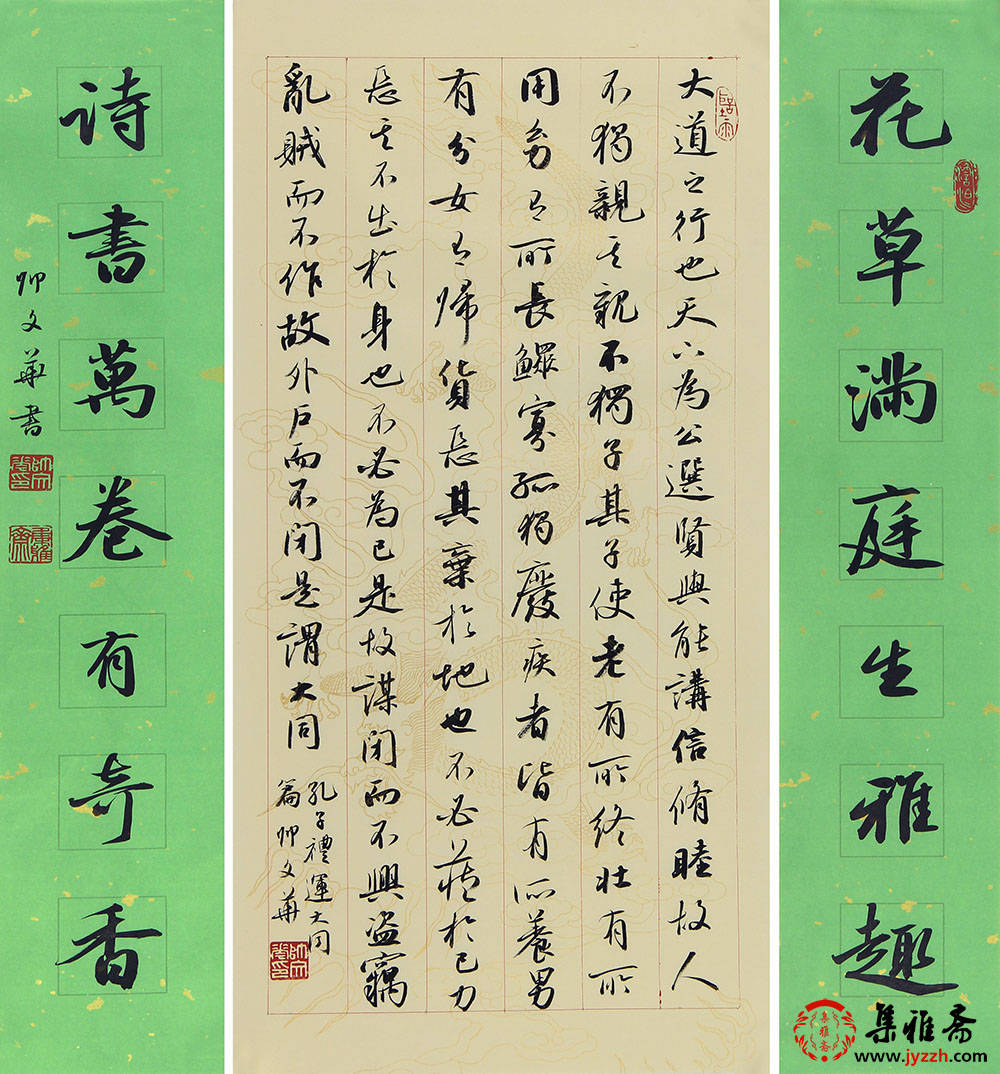 花草滿庭生雅趣
大道之行也天下為公選賢與能講信脩睦故人
不獨親其親不獨子其子使老有所終壯有所
用幼有所長鰥寡孤獨廢疾者皆有所養男
有分女有歸貨惡其棄於地也不必藏於己力
惡其不出於身也不必為己是故謀閉而不興盜竊
亂賊而不作故外戶而不閉是謂大同
孔子禮運大同
篇帥文華
詩書萬卷有奇香
帥文華書
集雅斋
www.jyzzh.com